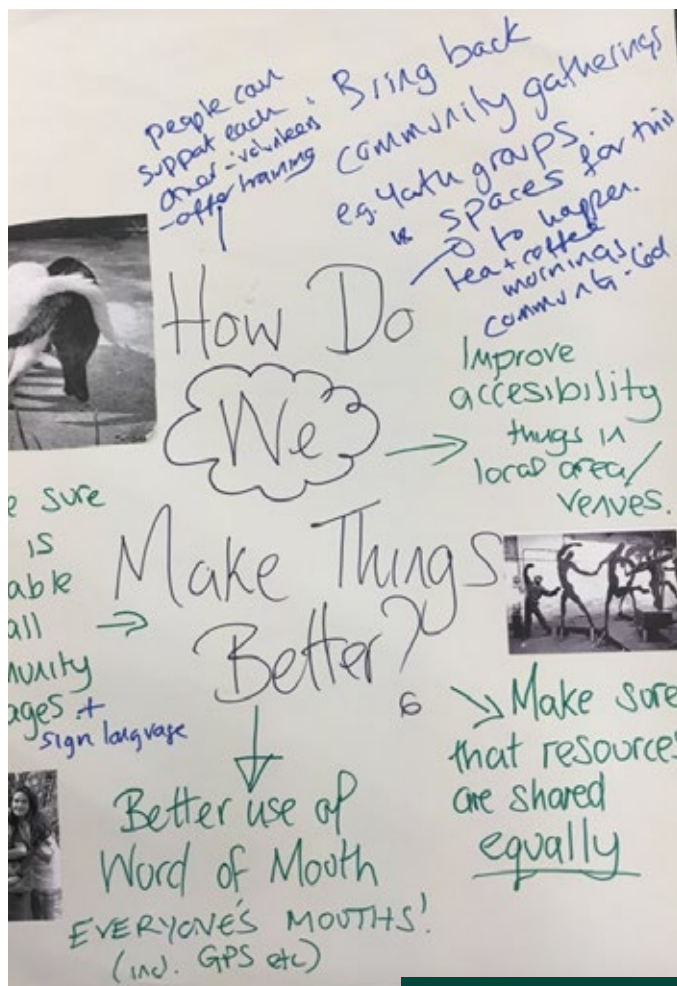 people can
support each
other - volunteers
- offer training
Bring back
community gatherings
eg. Youth groups.
spaces for this
to happen.
tea + coffee
mornings.
community-led
How Do
We
Make Things
Better?
6
Improve
accesibility
things in
local area/
venues.
e sure
is
able
all
munity
ages +
sign language
Make sure
that resources
are shared
equally
Better use of
Word of Mouth
EVERYONE'S MOUTHS!
(incl. GPS etc)